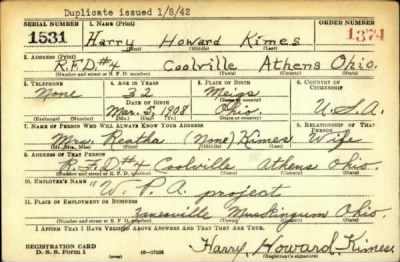 Duplicate issued 1/8/42
SERIAL NUMBER 1. NAME (Print) ORDER NUMBER
1531 Harry Howard Kimes 1374
(First) (Middle) (Last)
2. ADDRESS (Print)
R.F.D.#4 Coolville Athens Ohio.
(Number and street or R. F. D. number) (Town) (County) (State)
3. TELEPHONE 4. AGE IN YEARS 5. PLACE OF BIRTH 6. COUNTRY OF CITIZENSHIP
None 32 Meigs
DATE OF BIRTH (Town or county)
Mar. 5, 1908 Ohio U.S.A.
(Exchange) (Number) (Mo.) (Day) (Yr.) (State or country)
7. NAME OF PERSON WHO WILL ALWAYS KNOW YOUR ADDRESS 8. RELATIONSHIP OF THAT PERSON
Mrs. Reatha (None) Kimes Wife
(Mr., Mrs., Miss) (First) (Middle) (Last)
9. ADDRESS OF THAT PERSON
R.F.D#4 Coolville Athens Ohio.
(Number and street or R. F. D. number) (Town) (County) (State)
10. EMPLOYER'S NAME
"W.P.A. project
11. PLACE OF EMPLOYMENT OR BUSINESS
Zanesville Muskingum Ohio.
(Number and street or R. F. D. number) (Town) (County) (State)
I AFFIRM THAT I HAVE VERIFIED ABOVE ANSWERS AND THAT THEY ARE TRUE.
REGISTRATION CARD
D. S. S. Form 1 (over) Harry Howard Kimes.
(Registrant's signature)